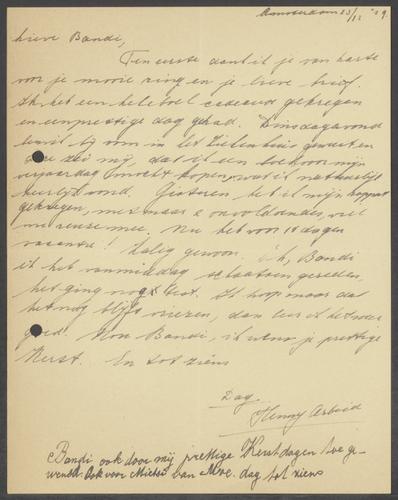 Amsterdam 23/12 '29
Lieve Bandi,
Ten eerste dank ik je van harte
voor je mooie ring en je lieve brief.
Ik heb een heleboel cadeaus gekregen
en een prettige dag gehad. Dinsdagavond
terwijl bij ons in het Ziekenhuis
zei mij, dat ik een boek voor mijn
verjaardag mocht kopen, wat ik natuurlijk
heerlijk vond. Gisteren heb ik mijn rapport
gekregen, met maar onvoldoendes, viel
me reuze mee. Nu heb voor 18 dagen
vacantie! Zalig gewoon. Bandi
ik heb vanmiddag schaatsen gereden,
het ging nogal best. Ik hoop maar dat
het nog blijft vriezen, dan leer ik het
goed! Nou Bandi, ik wens je prettige
Kerst. En tot ziens
Dag
Henny
Bandi ook door mij prettige Kerstdagen toege-
wenscht. Ook voor van Mevr. dag tot ziens